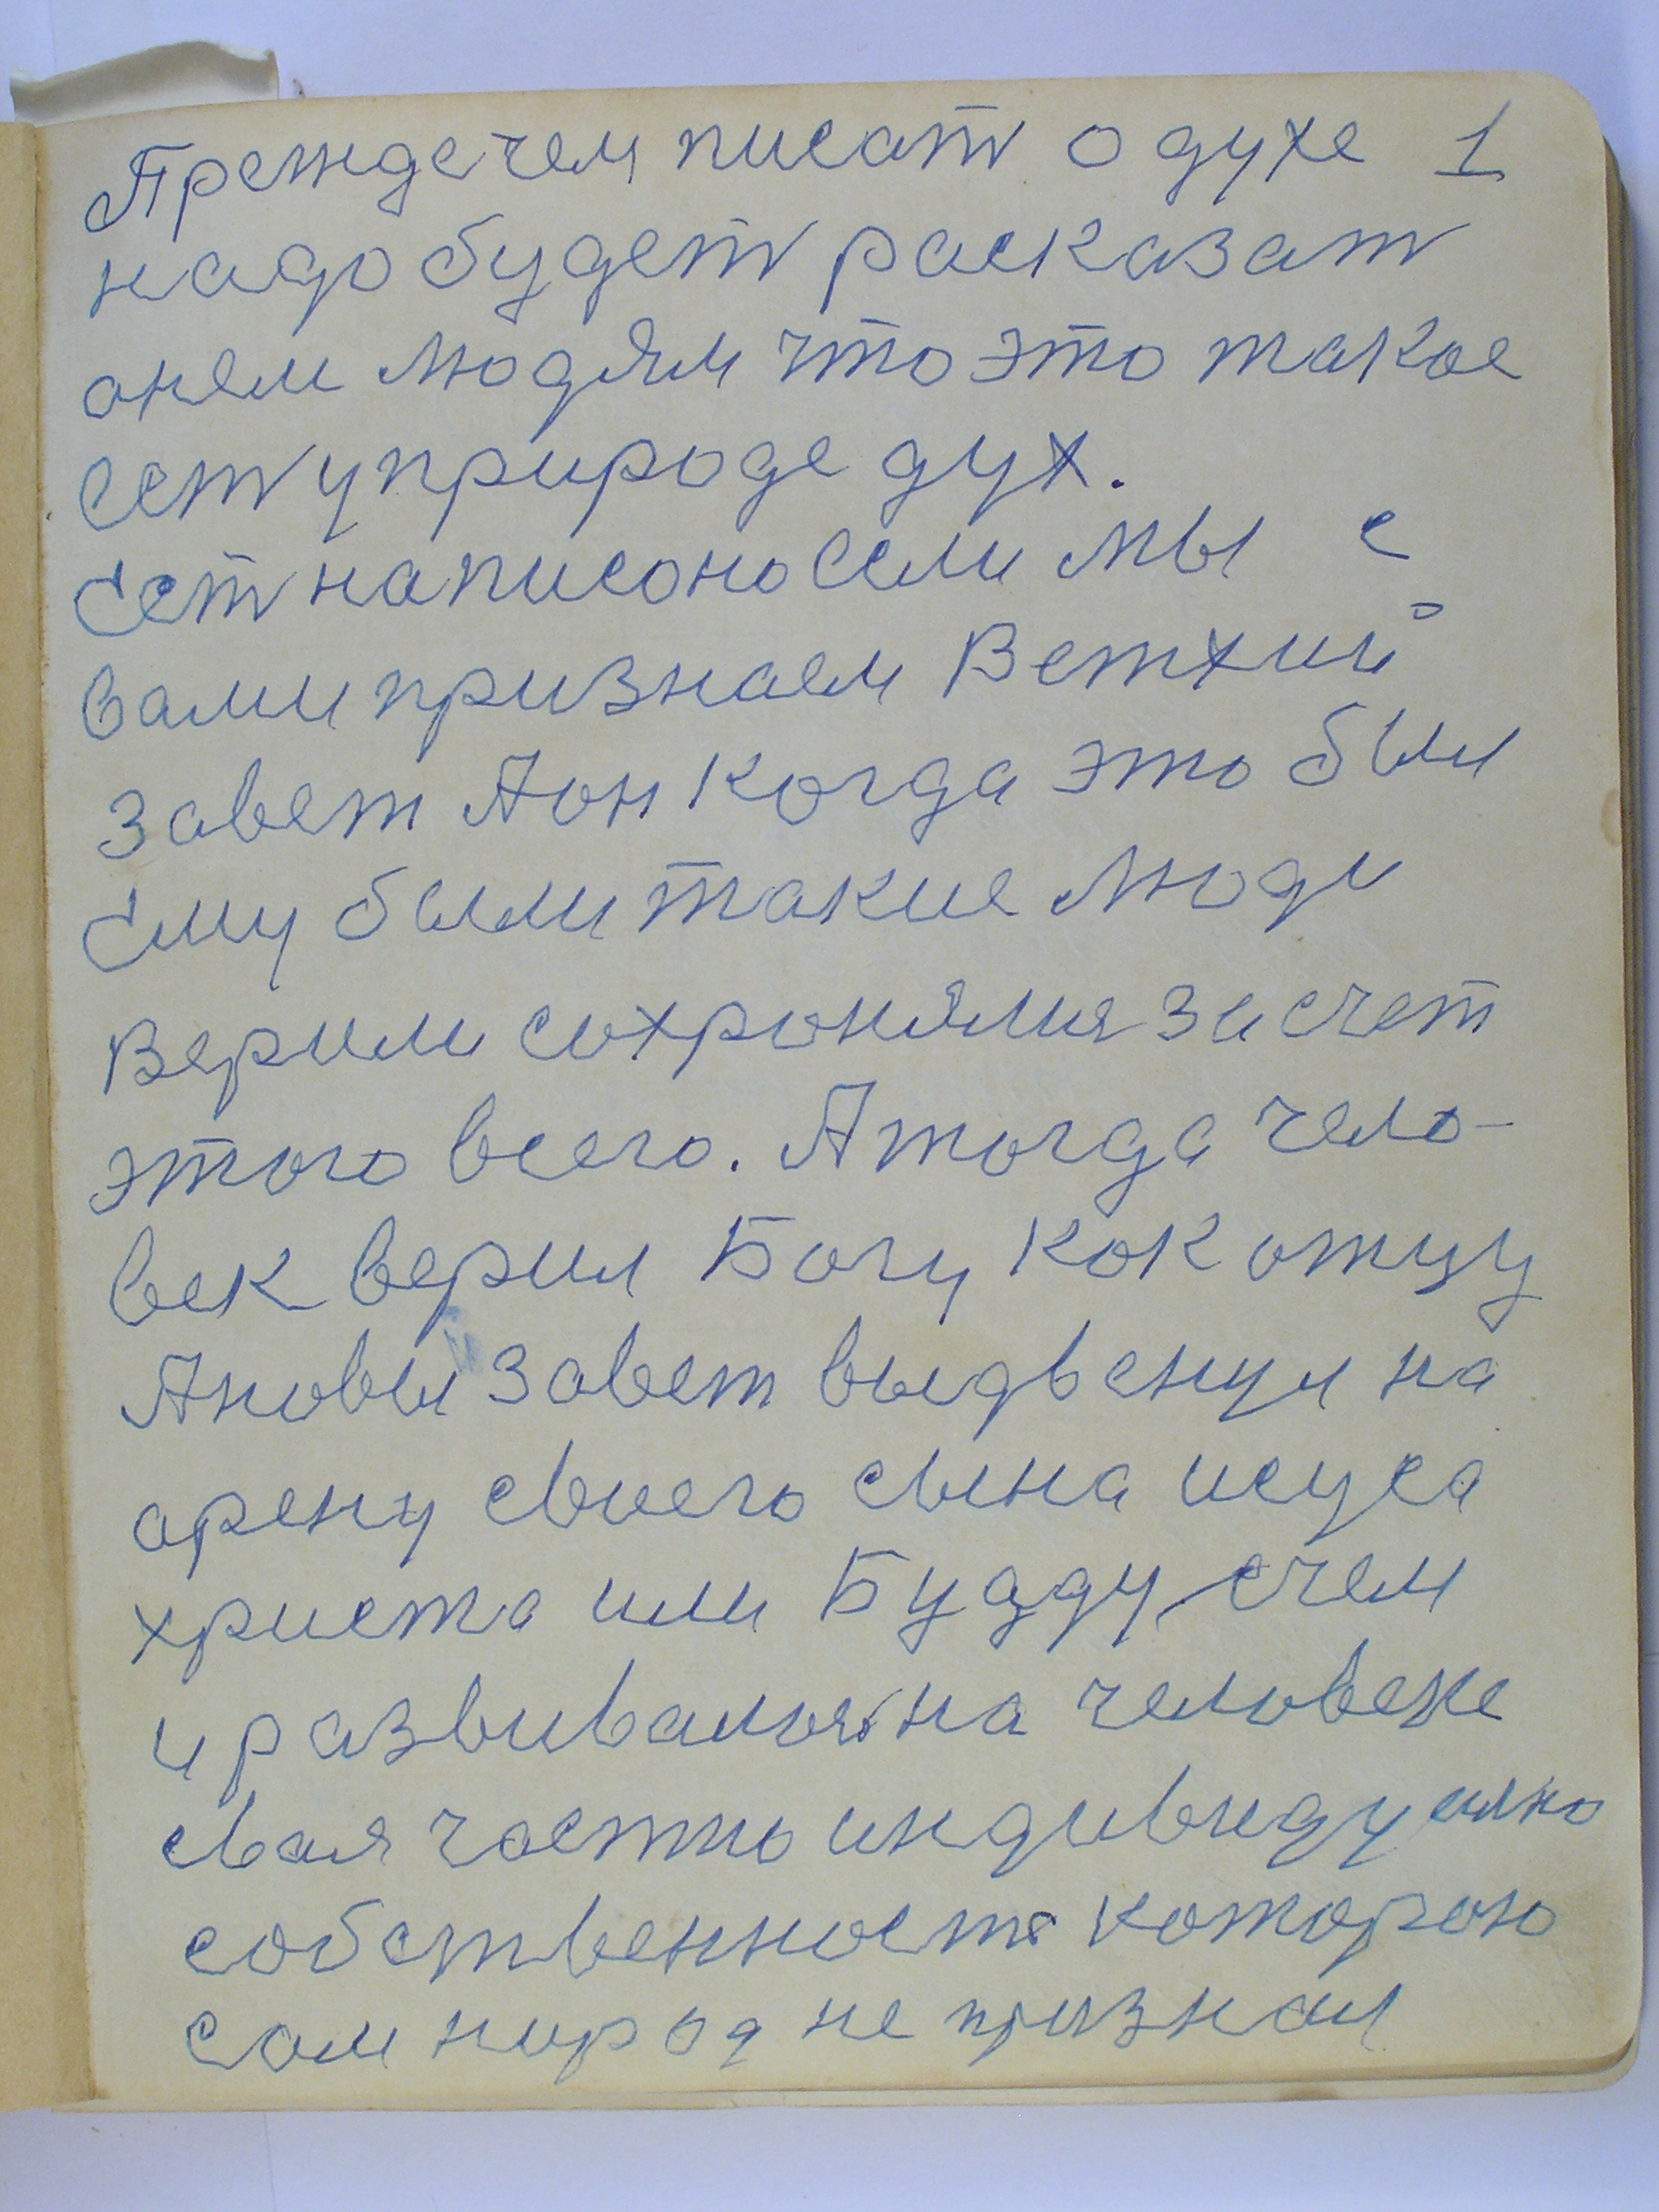 Прежде чем писат о духе 1
надо будет расказат
онем людям что это такое
Ест у природе дух.
Ест написоно Если мы с
вами признаем Ветхий
завет Аон когда это был
Ему были такие люди
верили сохронялия за счет
этого всего. А тогда чело-
век верил Богу как отцу
Ановы завет выдвенул на
арену своего сына исуса
христа или Будду, счем
и развивался на человеке
свая частно индивидуално
собственност которою
сам народ не признал